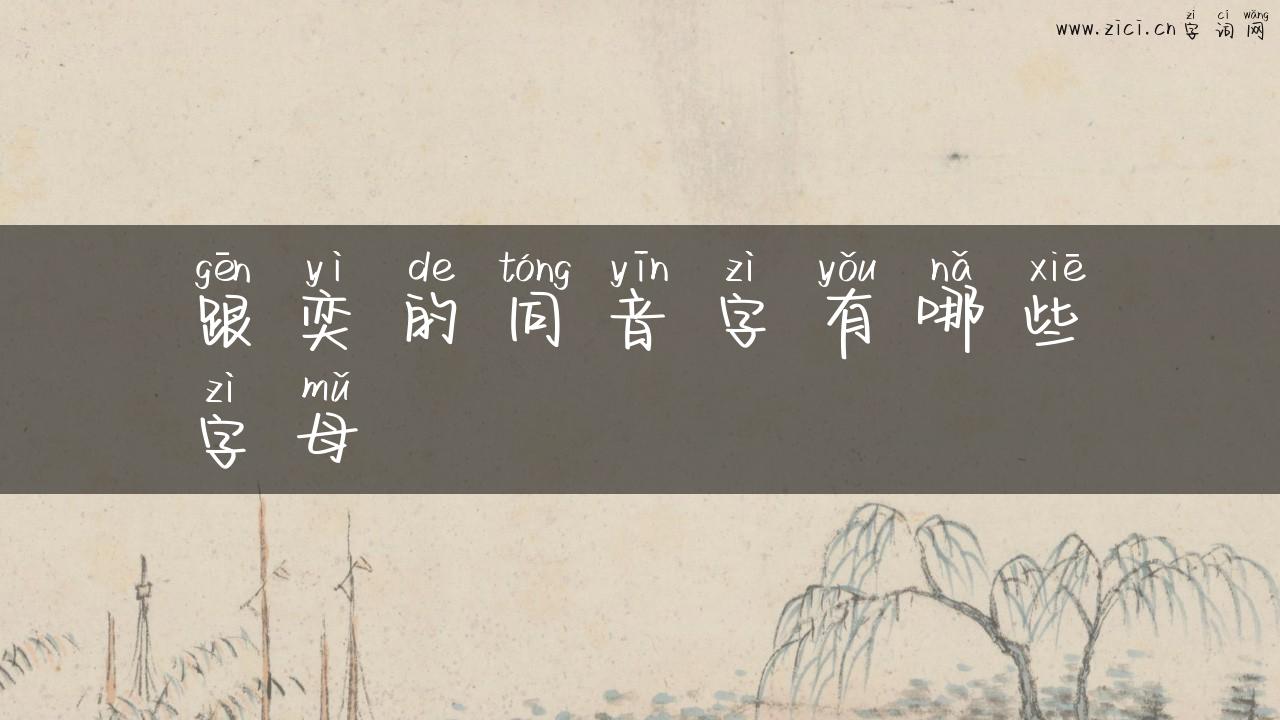 www.zici.cn
zì cí wǎng
字词网
gēn yì de tóng yīn zì yǒu nǎ xiē
跟奕的同音字有哪些
zì mǔ
字母